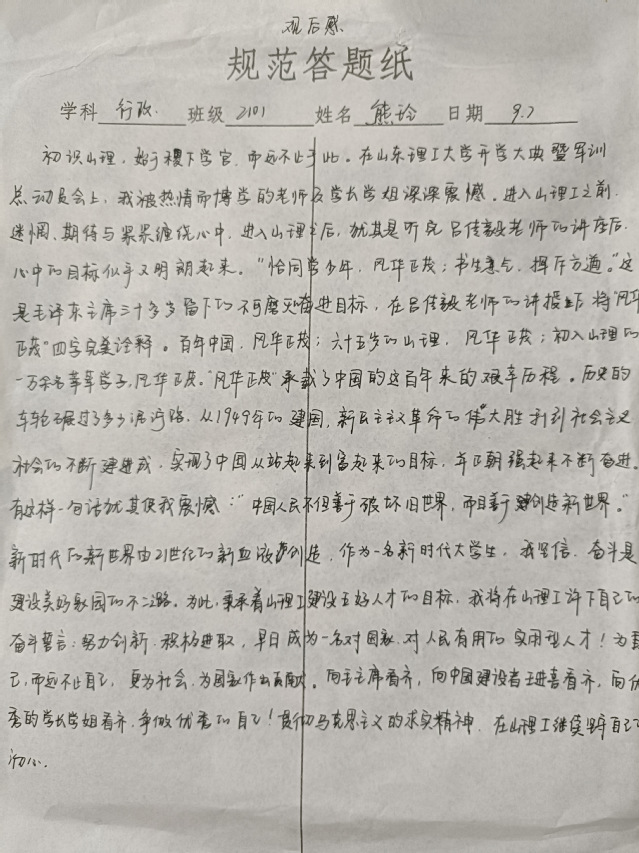 观后感
规范答题纸
学科 行政 班级 2101 姓名 熊玲 日期 9.7
初识山理，始于稷下学宫，而远不止于此。在山东理工大学开学大典暨军训
总动员会上，我被热情而博学的老师及学长学姐深深震憾。进入山理工之前，
迷惘、期待与紧紧缠绕心中，进入山理工后，尤其是听完吕佳毅老师的讲座后，
心中的目标似乎又明朗起来。“恰同学少年，风华正茂；书生意气，挥斥方遒。”这
是毛泽东主席三十多岁留下的不可磨灭奋进目标，在吕佳毅老师的讲授下将“风华
正茂”四字完美诠释。百年中国，风华正茂；六十五岁的山理，风华正茂；初入山理的
一万余名莘莘学子，风华正茂。“风华正茂”承载了中国的这百年来的艰辛历程。历史的
车轮碾过了多少泥泞路，从1949年的建国，新民主主义革命的伟大胜利到社会主义
社会的不断建进成，实现了中国从站起来到富起来的目标，并正朝强起来不断奋进。
有这样一句话尤其使我震憾：“中国人民不但善于破坏旧世界，而且善于创造新世界。”
新时代的新世界由21世纪的新血液创造，作为一名新时代大学生，我坚信，奋斗是
建设美好家园的不二路。为此，秉承着山理工建设五好人才的目标，我将在山理工许下自己的
奋斗誓言：努力创新，积极进取，早日成为一名对国家、对人民有用的实用型人才！为
己，而远不止自己，更为社会，为国家作出贡献。向毛主席看齐，向中国建设者王进喜看齐，向优
秀的学长学姐看齐，争做优秀的自己！贯彻马克思主义的求实精神，在山理工继续坚守自己
初心。